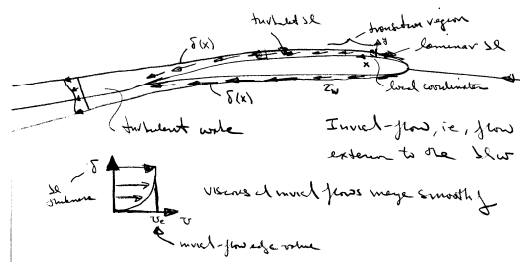 turbulent BL
transition region
δ(x)
y
laminar BL
x
local coordinates
δ(x)
τw
turbulent wake
Inviscid-flow, ie, flow
external to the BL &w
δ
BL
thickness
viscous & inviscid flows merge smoothly
ve
v
inviscid-flow edge value